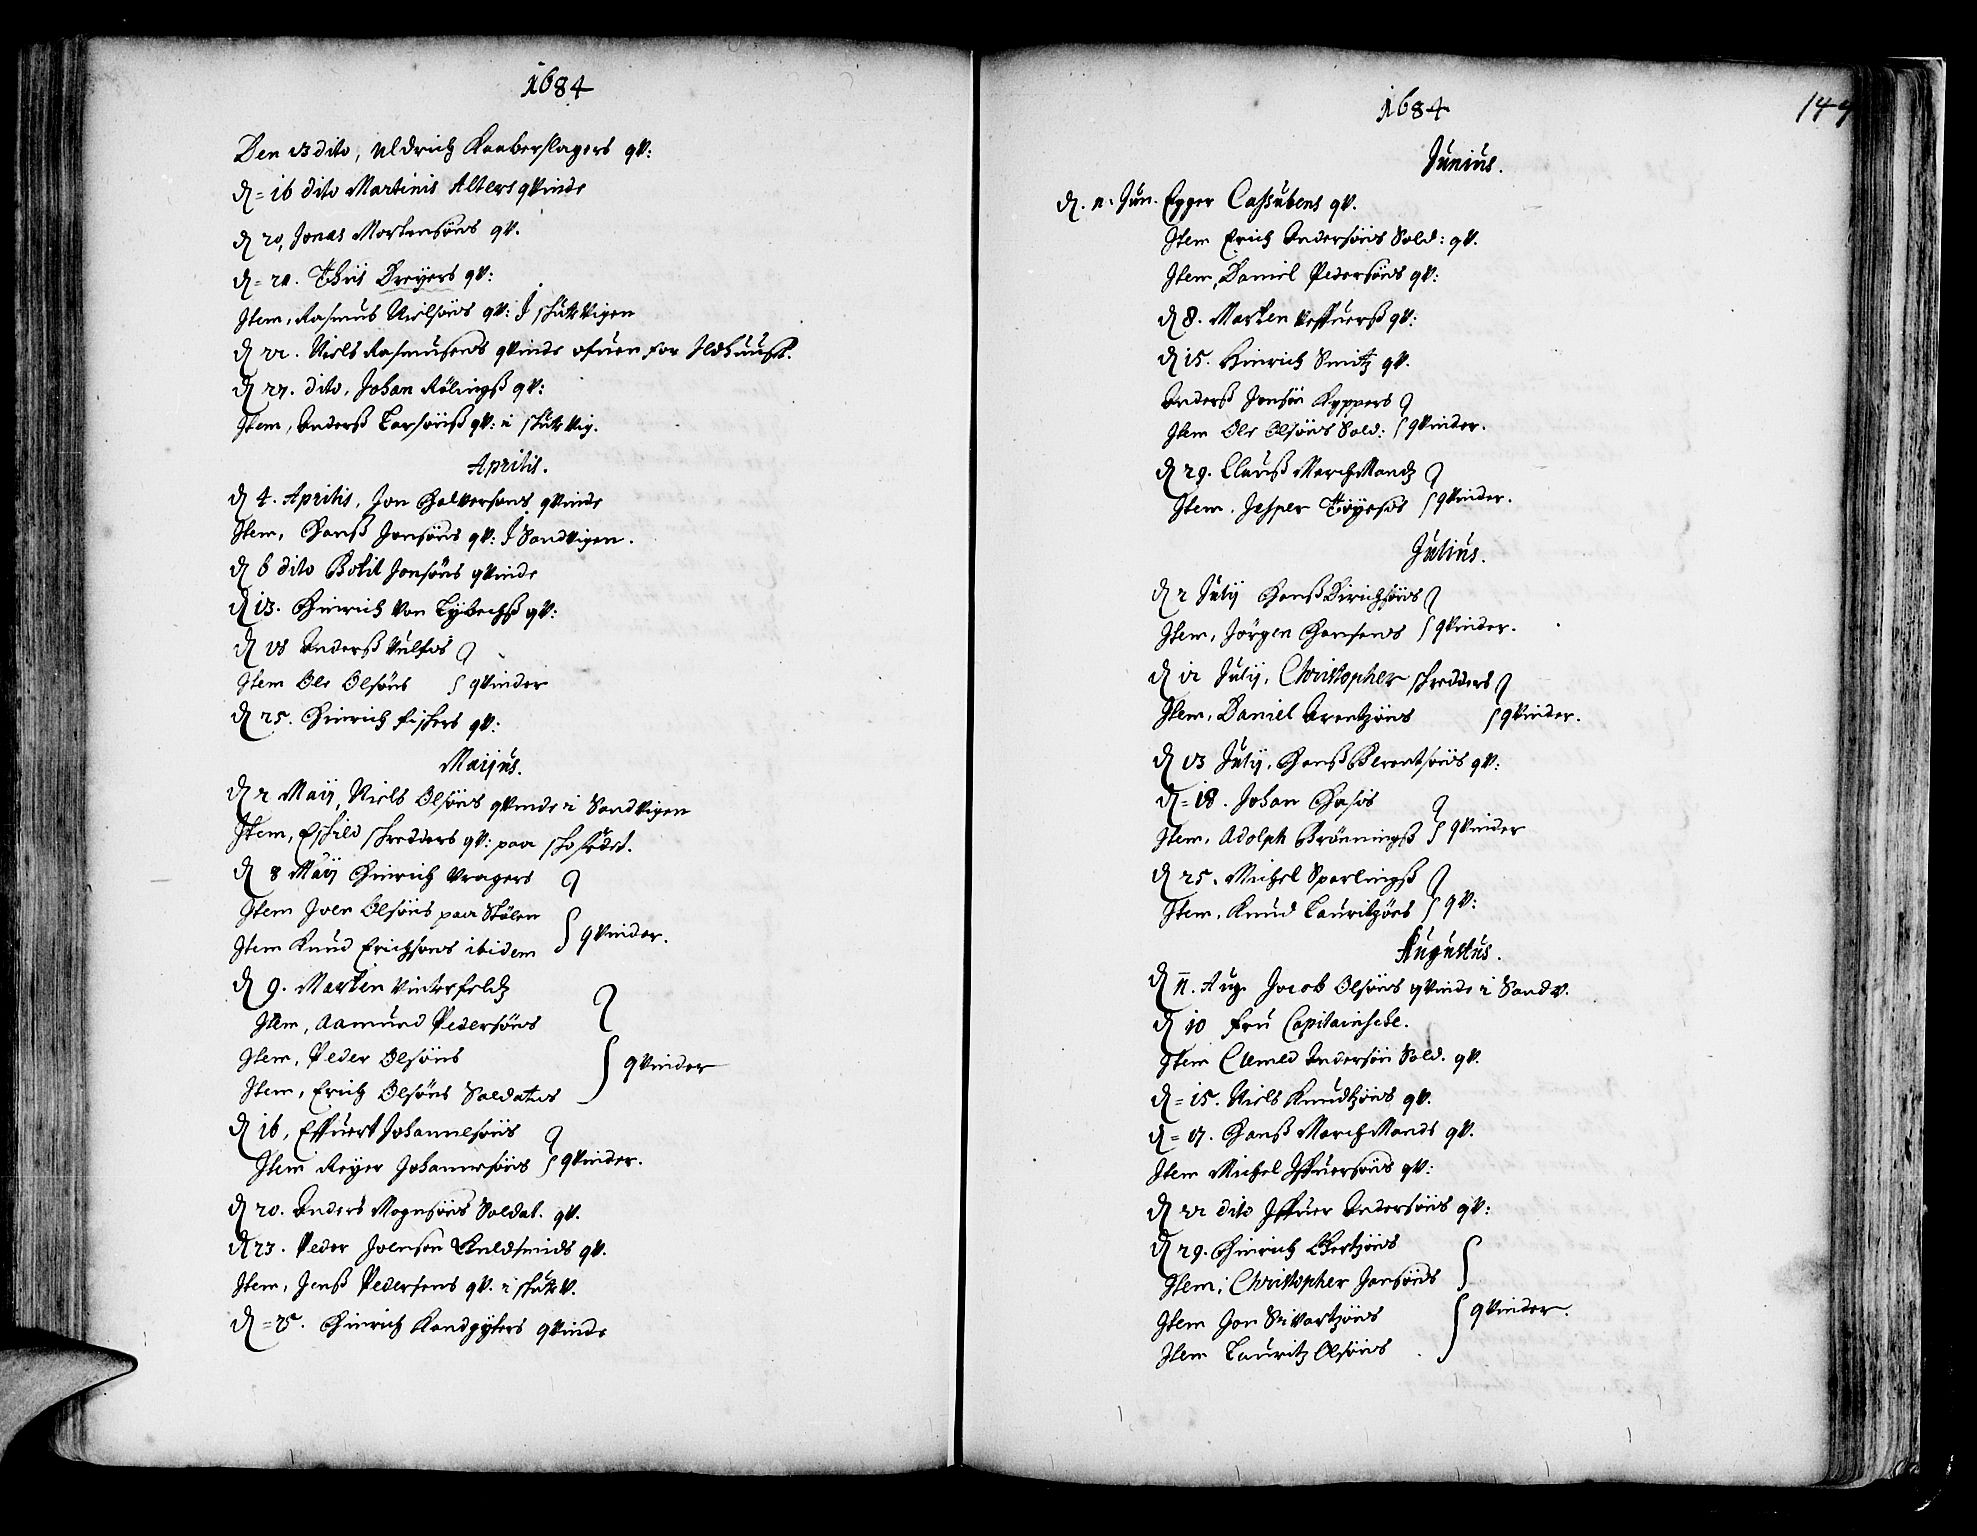 1684
Den 13 dito, Uldrich Kaaberslagers qv:
d = 16 dito Martinis Alters qvinde
d 20, Jonas Mortensøns qv.
d = 21. Thiis Dreyers qv:
Item, Rasmus Nielsøns qv: I skutevigen
d 22. Niels Rasmusens qvinde ofuen for Ildhuuset.
d 27. dito, Johan Rölingß qv:
Item, Anderß Larsønß qv: i skutevig.
Aprilis.
d 4. Aprilis, Jon Halversens qvinde
Item, Hanß Jonsøns qv: I Sandvigen.
d 6 dito Botil Jonsøns qvinde
d 13. Hinrich von Lybechß qv:
d 18 Anderß Vulfes
Item Ole Olsøns qvinder
d 25. Hinrich fiskers qv:
Maijus.
d 2 Maij, Niels Olsøns qvinde i Sandvigen
Item, Eskild skredders qv: paa
d 8 Maij Hinrich Vragers
Item Joen Olsøns paa Stølen
Item Knud Erichsens ibidem qvinder.
d 9. Marten Vinterfeldz
Item, Aamund Pedersøns
Item, Peder Olsøns
Item, Erich Olsøns Soldatus qvinder
d 16, Effuert Johannesøns
Item Reyer Johannesøns qvinder.
d 20. Anders Mognsøns Soldat. qv.
d 23. Peder Joensøn Guldsmids qv.
Item, Jenß Pedersens qv. i skutev.
d = 25. Hinrich Kandgyters qvinde
1684
Junius.
d. 1. Jun. Egger Cassubens qv.
Item Erich Andersøns Sold: qv.
Item, Daniel Pedersøns qv:
d 8. Marten Veffuerß qv:
d 15. Hinrich Smitz qv.
Anderß Jensøn Kyppers
Item Ole Olsøns Sold: qvinder.
d 29. Clauß MarchMandz
Item. Jesper Tøyeses qvinder.
Julius.
d 2 Julij Hanß Dirichsøns
Item, Jörgen Hansens qvinder.
d 12 Julij, Christopher skredders
Item, Daniel Arentzøns qvinder.
d 13 Julij, Hanß Berentsøns qv:
d = 18. Johan Hases
Item, Adolph Brønningß qvinder
d 25. Michel Sperlingß
Item, Knud Lauritzøns qv:
Augustus.
d 11. Aug. Jacob Olsøns qvinde i Sandv.
d 10 fru Capitainske.
Item Clemed Andersøn Sold. qv.
d = 15. Niels Knudtzøns qv.
d = 17. Hanß MarchMands qv.
Item Michel Iffuersøns qv:
d 22 dito Iffuer Andersøns qv:
d 29. Hinrich Gertzøns
Item; Christopher Jansøns
Item Jon Sivertzøns
Item Lauritz Olsøns qvinder.